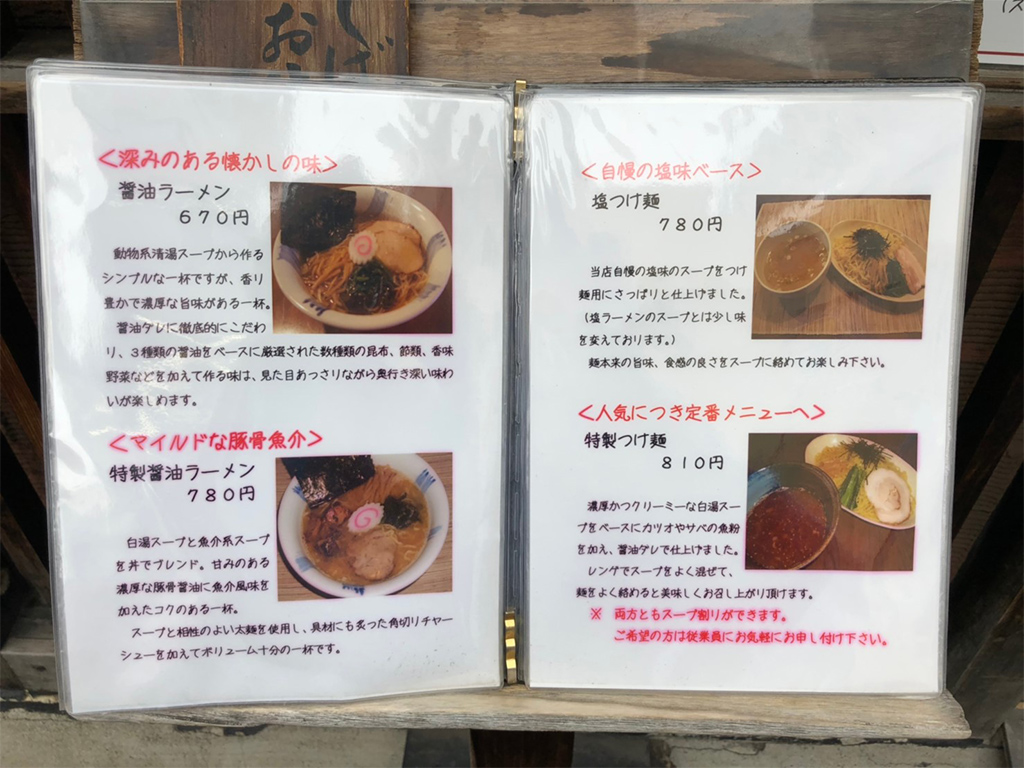 ＜深みのある懐かしの味＞
醤油ラーメン
６７０円
動物系清湯スープから作る
シンプルな一杯ですが、香り
豊かで濃厚な旨味がある一杯。
醤油ダレに徹底的にこだわ
り、３種類の醤油をベースに厳選された数種類の昆布、節類、香味
野菜などを加えて作る味は、見た目あっさりながら奥行き深い味わ
いが楽しめます。
＜マイルドな豚骨魚介＞
特製醤油ラーメン
７８０円
白湯スープと魚介系スープ
を丼でブレンド。甘みのある
濃厚な豚骨醤油に魚介風味を
加えたコクのある一杯。
スープと相性のよい太麺を使用し、具材にも炙った角切りチャー
シューを加えてボリューム十分の一杯です。
＜自慢の塩味ベース＞
塩つけ麺
７８０円
当店自慢の塩味のスープをつけ
麺用にさっぱりと仕上げました。
（塩ラーメンのスープとは少し味
を変えております。）
麺本来の旨味、食感の良さをスープに絡めてお楽しみ下さい。
＜人気につき定番メニューへ＞
特製つけ麺
８１０円
濃厚かつクリーミーな白湯スー
プをベースにカツオやサバの魚粉
を加え、醤油ダレで仕上げました。
レンゲでスープをよく混ぜて、
麺をよく絡めると美味しくお召し上がり頂けます。
※　両方ともスープ割りができます。
ご希望の方は従業員にお気軽にお申し付け下さい。